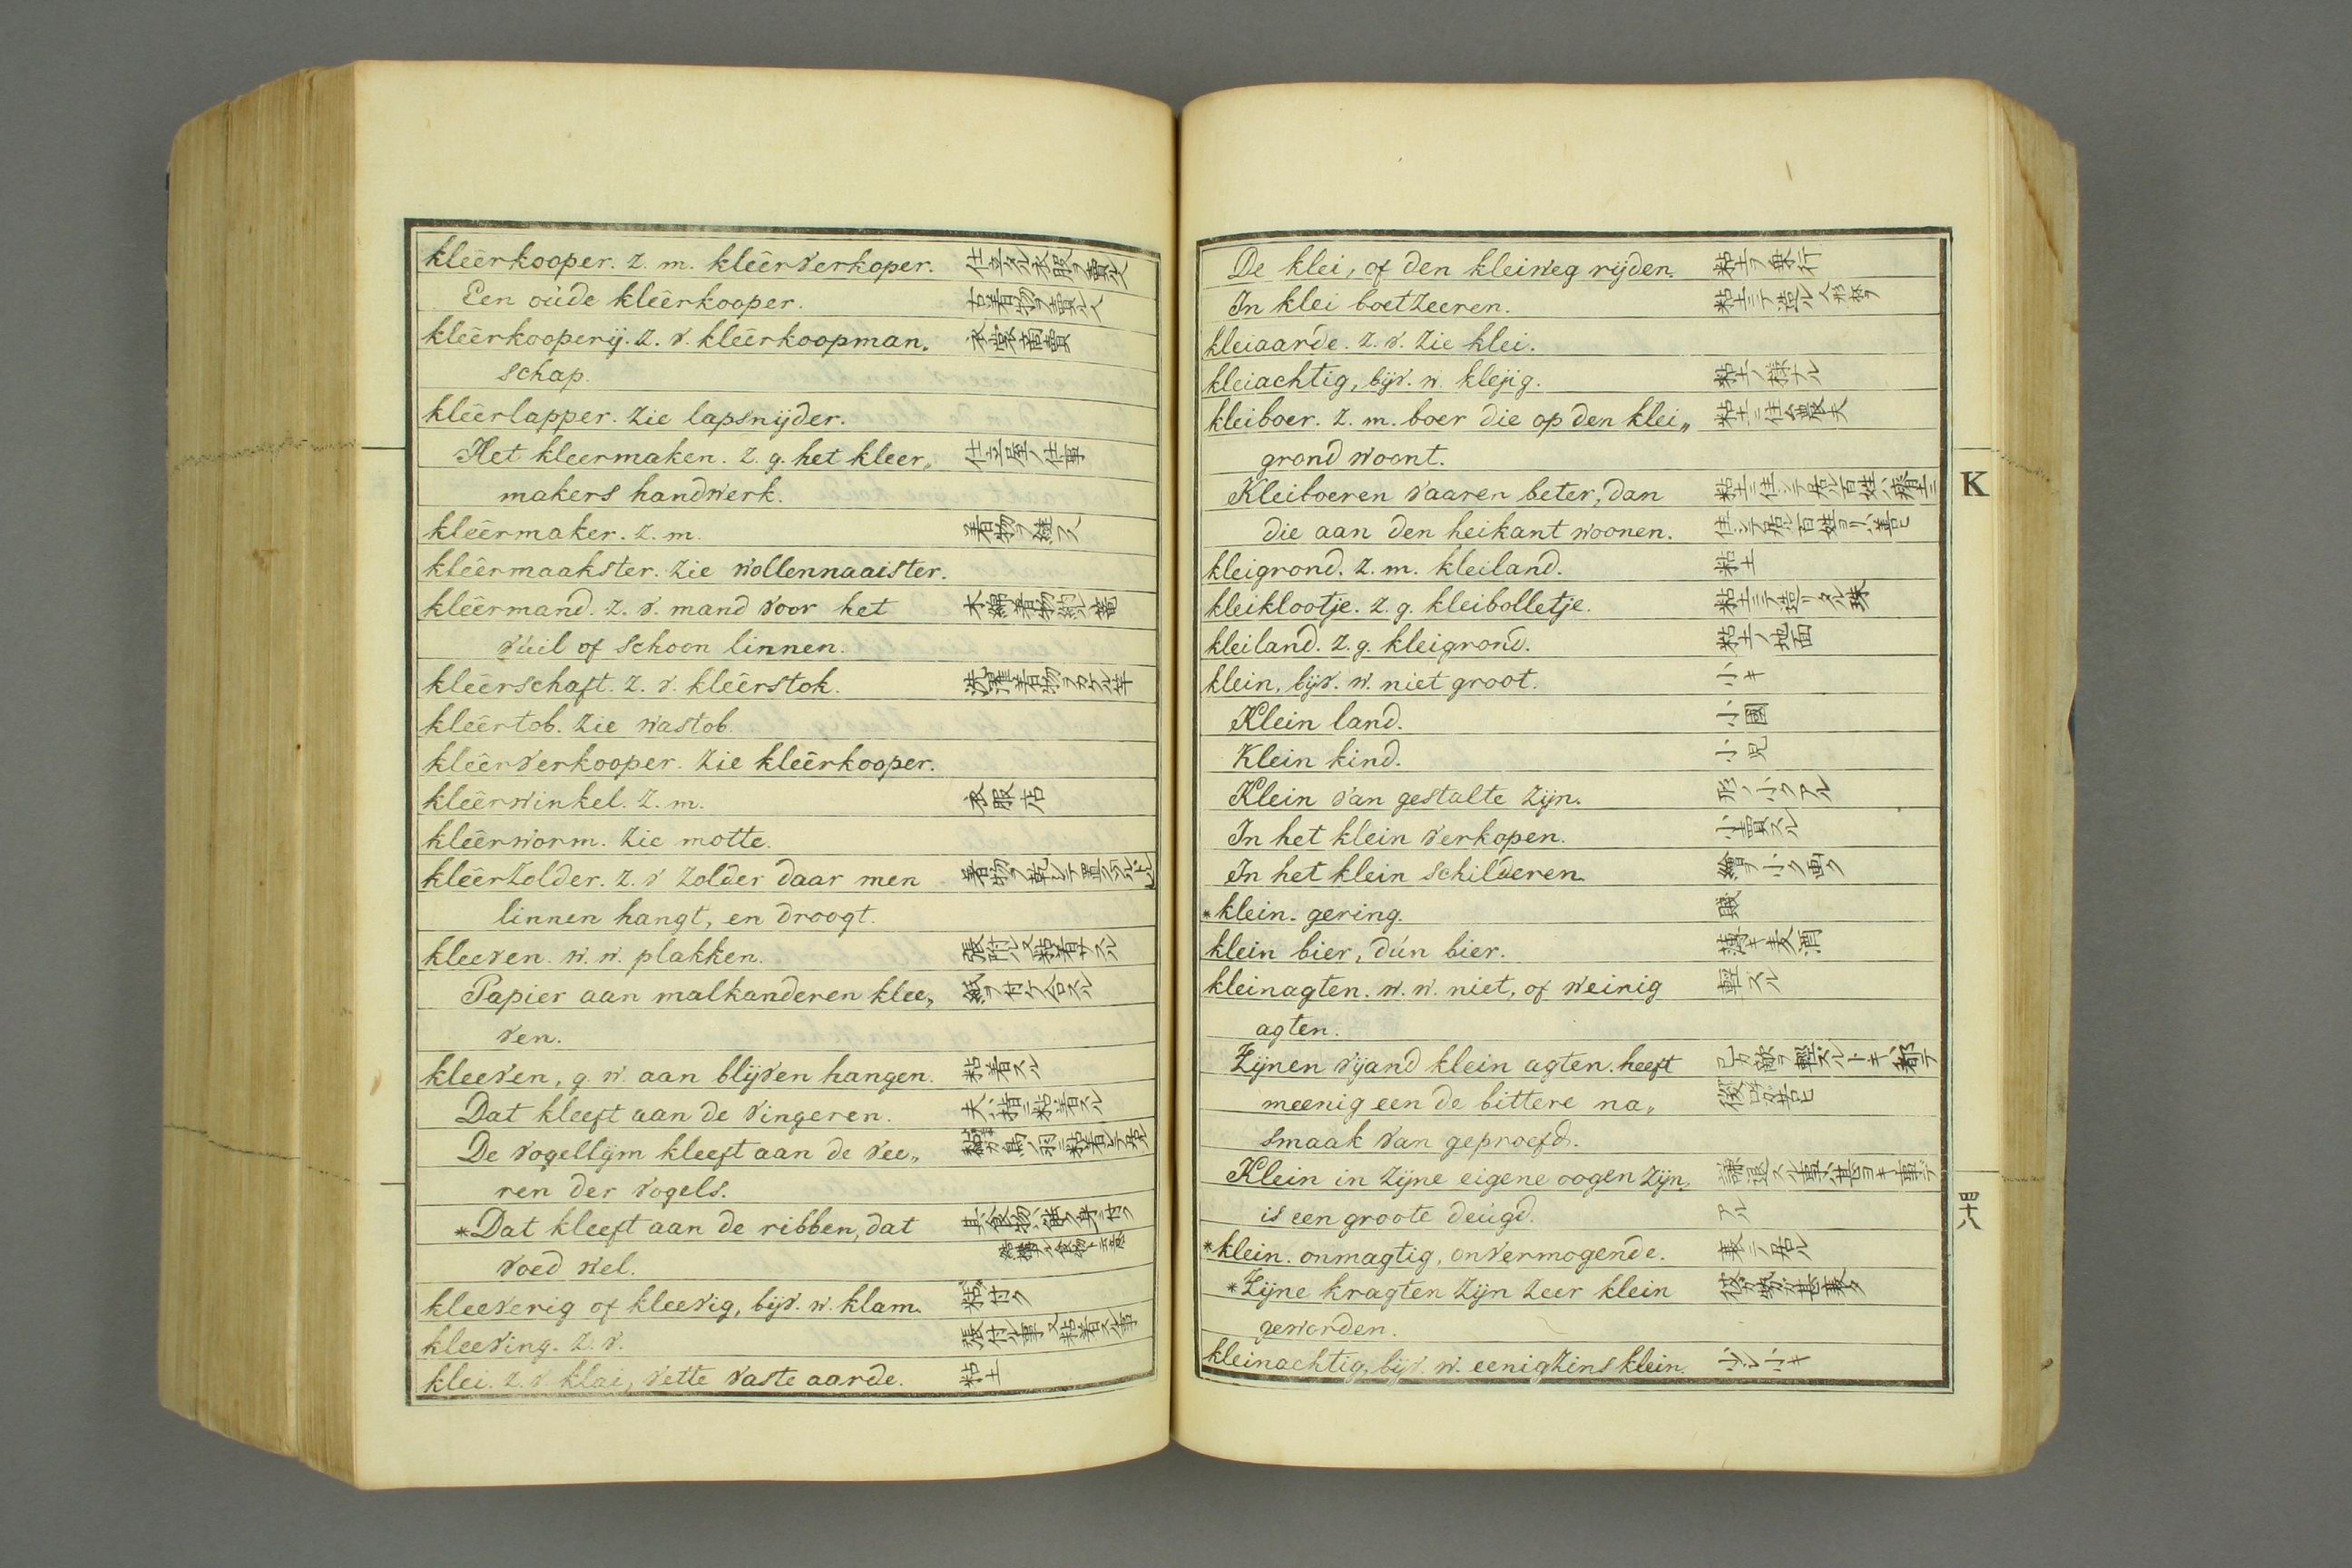 kleêrkooper. z. m. kleêrverkoper. 仕立タル衣服ヲ賣ル人
Een oùde kleêrkooper. 古着物ヲ賣ル人
kleêrkooperij. z. v. kleêrkoopman„ 衣裳商賣
schap.
kleêrlapper. zie lapsnijder.
Het kleermaken. z. g. het kleer„ 仕立屋ノ仕事
makers handwerk.
kleêrmaker. z. m. 着物ヲ縫フ人
kleêrmaakster. zie wollennaaister.
kleêrmand. z. v. mand voor het 木綿着物
vùil of schoon linnen.
kleêrschaft. z. v. kleêrstok. 洗濯着物ヲカケル竿
kleêrtob. zie wastob.
kleêrverkooper. zie kleêrkooper.
kleêrwinkel. z. m. 衣服店
kleêrworm. zie motte.
kleêrzolder. z. v zolder daar men 着物ヲ乾シテ置ク
linnen hangt, en droogt.
kleeven. w. w. plakken. 張附ル又粘着サスル
Papier aan malkanderen klee„ 紙ヲ付ケ合スル
ven.
kleeven, g. w. aan blijven hangen. 粘着スル
Dat kleeft aan de vingeren. 夫ハ指ニ粘着スル
De vogellijm kleeft aan de vee„ 鳥ノ羽ニ粘着シテ居ル
ren der vogels.
*Dat kleeft aan de ribben, dat 其食物ハ
voed wel.
kleeverig of kleevig, bijv. w. klam. 粘付ク
kleeving. z. v. 張付ル事又粘着スル事
klei. z. v klai, vette vaste aarde. 粘土
De klei, of den kleiweg rijden. 粘土ヲ乗行
In klei boetzeeren. 粘土ニテ造ル人形抔ヲ
kleiaarde. z. v. zie klei.
kleiachtig, bijv. w. klejig. 粘土ノ様ナル
kleiboer. z. m. boer die op den klei„ 粘土ニ住ム農夫
grond woont.
Kleiboeren vaaren beter, dan 粘土ニ住シテ居ル百姓ハ瘠土ニ
die aan den heikant woonen. 住シテ居ル百姓ヨリハ善ヒ
kleigrond. z. m. kleiland. 粘土
kleiklootje. z. g. kleibolletje. 粘土ニテ造リタル珠
kleiland. z. g. kleigrond. 粘土ノ地面
klein, bijv. w. niet groot. 小キ
Klein land. 小國
Klein kind. 小児
Klein van gestalte zijn. 形ノ小クアル
In het klein verkopen. 小賣スル
In het klein schilderen. 繪ヲ小ク画ク
*klein. gering. 賤
klein bier, dún bier. 薄キ麦酒
kleinagten. w. w. niet, of weinig 輕ズル
agten.
Zijnen vijand klein agten. heeft 己カ敵ヲ輕ズルトキハ都テ
meenig een de bittere na„ 後口ガ苦ヒ
smaak van geproefd.
Klein in zijne eigene oogen zijn, 謙退スル事ハ甚ヨキ事デ
is een groote deùgd. アル
*klein. onmagtig, onvermogende. 衰ヘテ居ル
*Zijne kragten zijn zeer klein 彼カ勢ガ甚衰タ
geworden.
kleinachtig, bijv. w. eenigzins klein. 少シ小キ
K
四十八